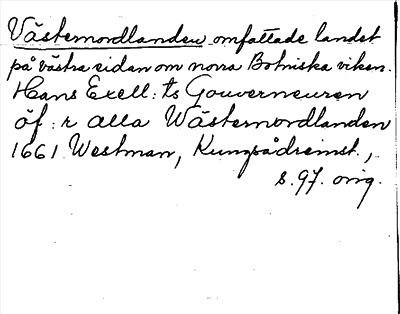 Västernordlanden omfattade landet
på västra sidan om norra Botniska viken.
Hans Excell:ts Gouverneuren
öf:r alla Wästernordlanden
1661. Westman, Kungsådreinst.,
s. 97. orig.